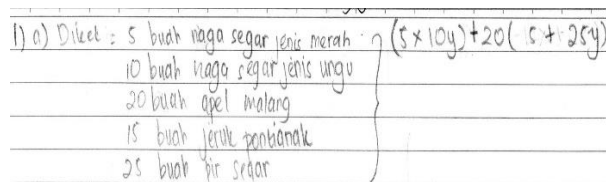 1) a) Diket : 5 buah naga segar jenis merah (5 × 10y) + 20( 5 + 25y)
10 buah naga segar jenis ungu
20 buah apel malang
15 buah jeruk pontianak
25 buah pir segar